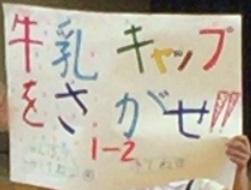 牛乳キャップ
をさがせ!!
1-2